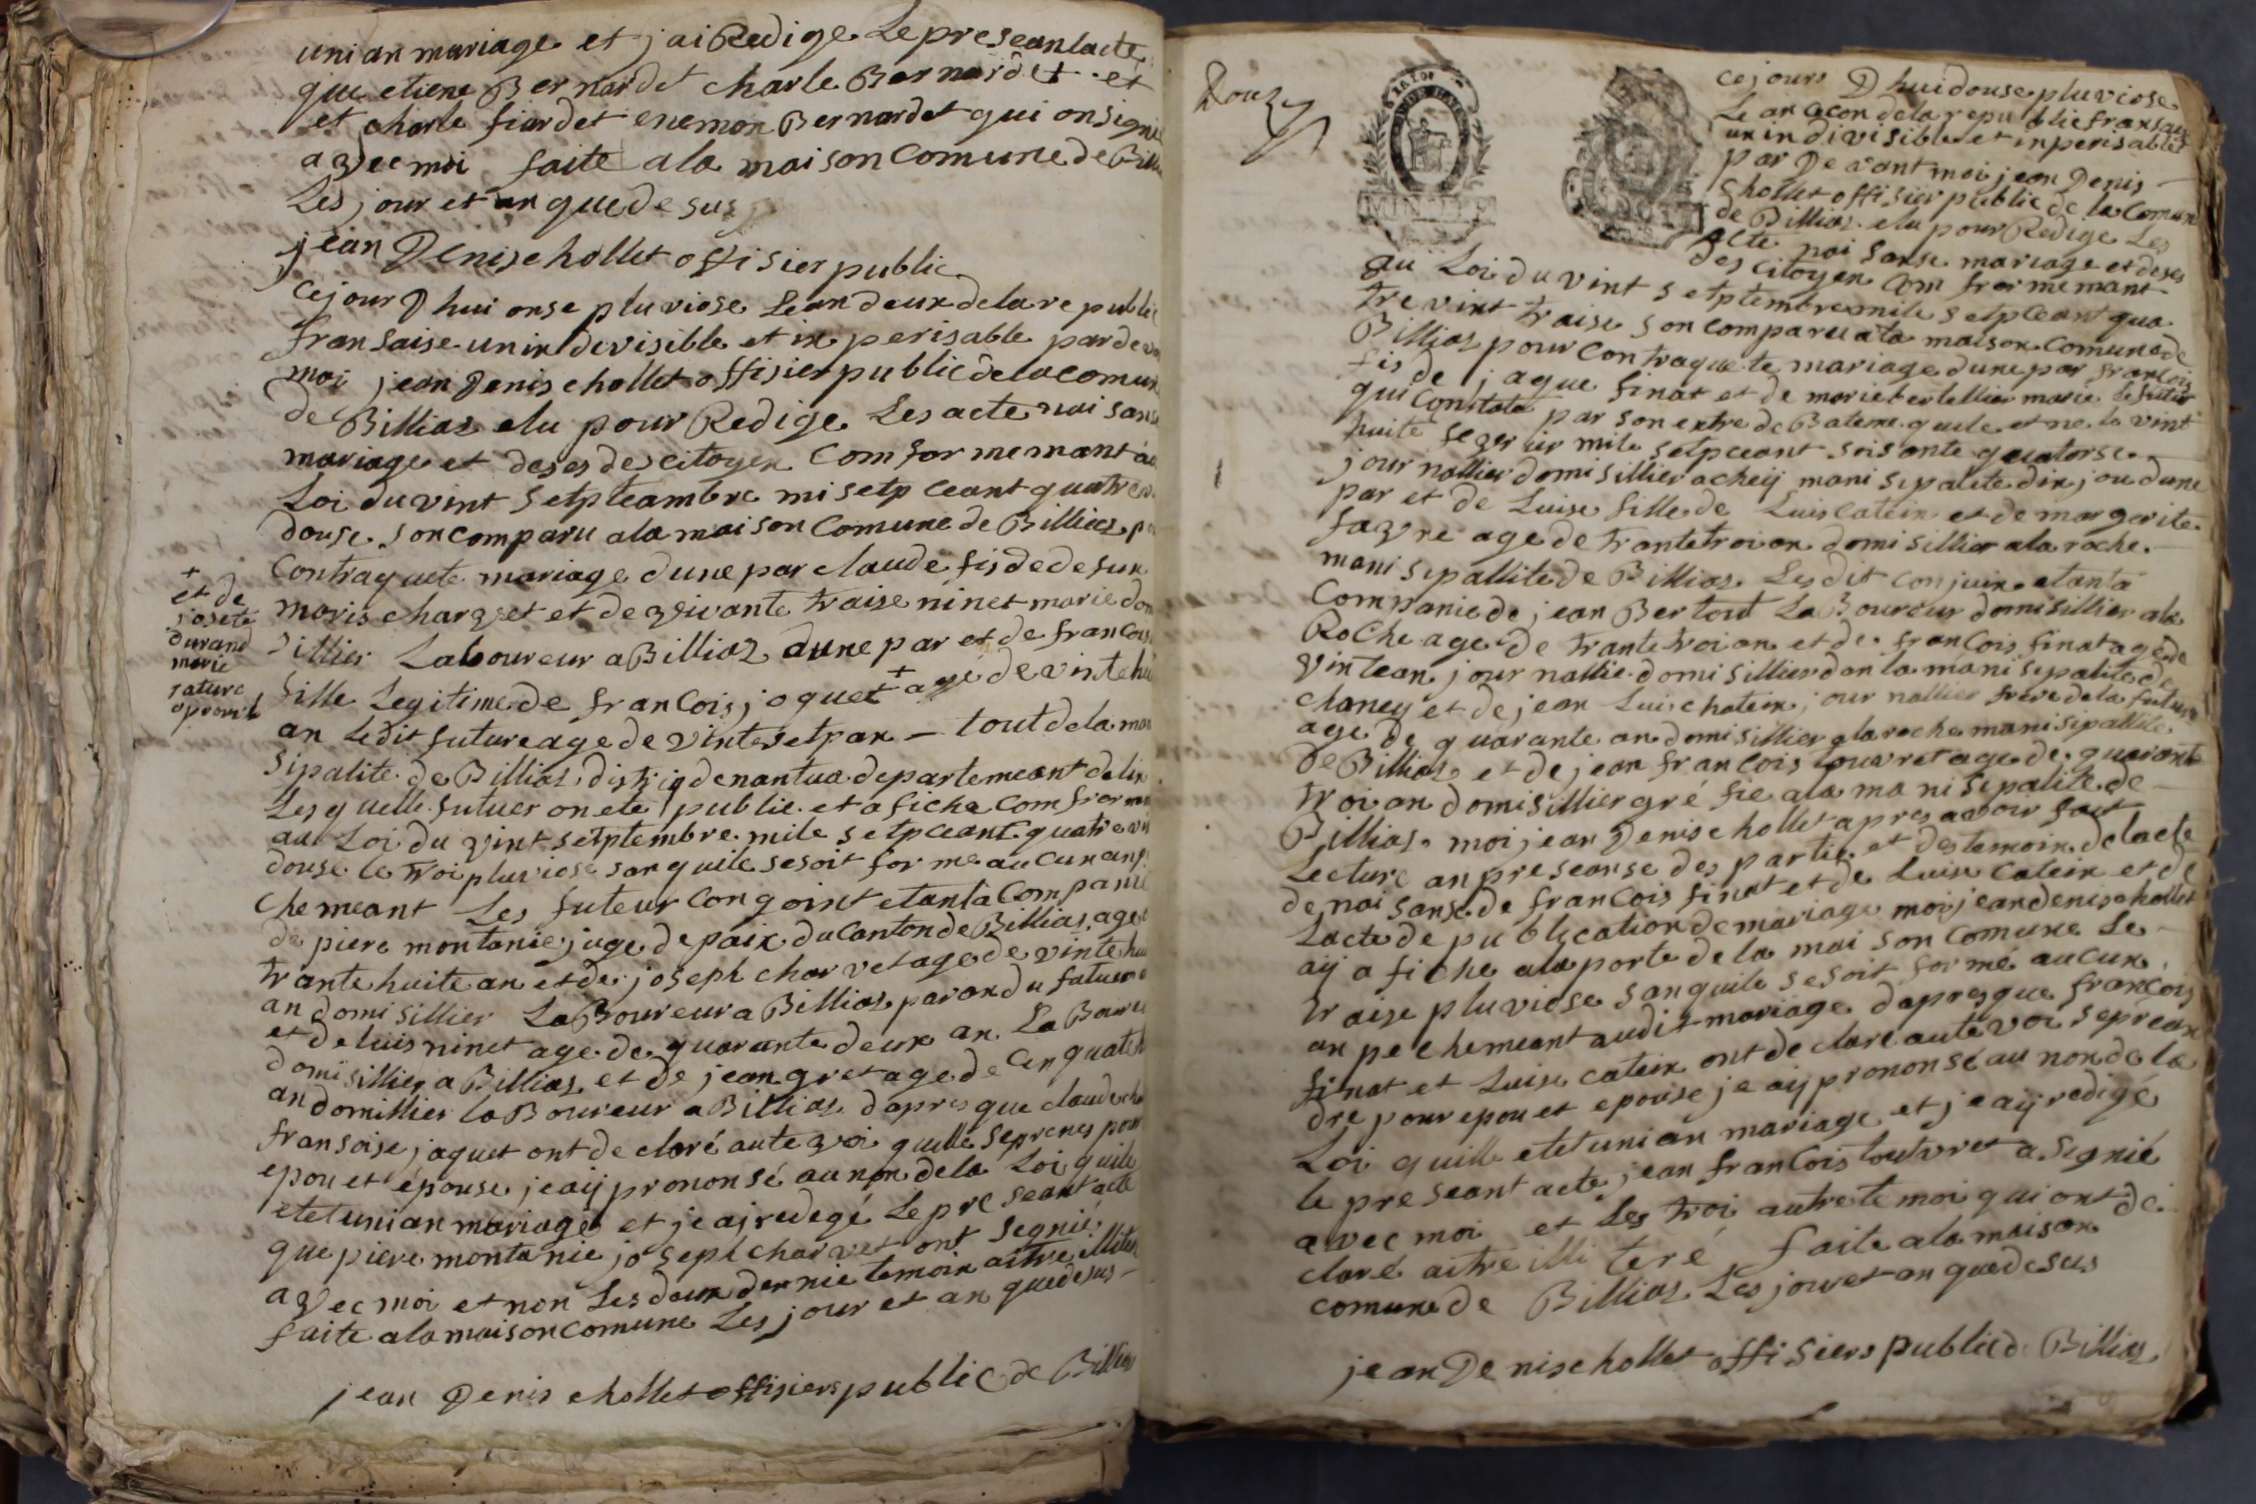 uni an mariage et j ai Redige Le preseant acte
que etiene Bernardet charle Bernardet et
et charle fiardet enemon Bernardet qui on signié
avec moi faite a la maison Comune de Billi
Les jour et an que de sus
jean Denis chollet offisier public
Ce jour D hui onse pluviose Lean deux de la re public
fransaise un indevisible et in perisable par deva
moi jean Denis chollet offisier public de la comun
de Billias elu pour Redige Les acte nai sans
mariage et deses des citoyen Com for me mant au
Loi du vint setpteambre mi setp ceant quatre v
douse son comparu a la maison Comune de Billias p
Contraquete mariage dune par claude fis de defun
moris charvet et de vivante traise ninet marie dom
sillier Laboureur a Billiaz dune par et de francois
fille Legitime de francois jaquet + age de vinte hui
+
et de
josete
durand
marie
rature
aprouvé
an Ledit future age de vinte setp an — tout de la mu
sipalite de Billias distriq de nantua departemeant de lin
Les quelle futuer on ete publie et a fiche Com for me
au Loi du vint setptembre mile setp ceant quatre vin
douse le troi pluviose san quile se soit for me aucun anp
chemeant Les futeur Congoint etant a Companié
de piere montanie juge de paix du Canton de Billias age
trante huite an et de joseph charvet age de vinte hu
an domisillier LaBoureur a Billias paran du future
et de luis ninet age de quarante deux an LaBoure
domisillier a Billias et de jean gret age de Cinquate
an domillier laBoureur a Billias dapres que claude cha
fransoise jaquet ont de claré aute voi quille se prenes pour
epou et épouse je aij prononsé au non de la Loi quile
etet uni an mariage et je aj redegé Le preseant acte
que piere montanie joseph charvet ont segnié
avec moi et non Les deux dernie temoin aitre illiter
faite a la maison comune Les jour et an que de sus —
jean Denis chollet offisiers public de Billias
Douz
Ce jours D hui douse pluviose
Le an cecon de la republic fransais
un indivisible et inperisable
par De vant moi jean Denis
chollet offisier public de la Comun
de Billias elu pour Redige Les
acte nai sanse mariage et deses
des citoyen Com for me mant
au Loi du vint setptembre mile setp ceant qua
tre vint traise son comparu a la maison Comune de
Billias pour Contraquete mariage dune par francois
fis de jaque finat et de marie bertellier marie le futur
qui Constate par son extre de Bateme quile et ne le vint
huite fevrier mile setpceant soisante quatorse
jour nallier domisillier a cheij manisipalite din jou dune
par et de Luise fille de Luis Catein et de margerite
favre age de trante troi an domisillier a la roche
manisipallite de Billias Les dit conjuin etant a
Companie de jean Bertout LaBoureur domisillier a la
Roche age de trante troi an et de francois finat age de
vinte an jour nallie domisillier dan la manisipalite de
chaney et de jean Luis chatein jour nallier frere de la future
age de quarante an domisillier a la roche manisipallite
de Billias et de jean francois louvret age de quarante
troi an domisillier gré fie a la manisipalite de
Billias moi jean Denis chollet apres avoir fait
Lecture an preseanse des partie et des temoin de lacte
de nai sanse de francois finat et de Luise Catein et de
Lacte de publication de mariage moi jean denis chollet
aij a fiche a la porte de la mai son comune Le
traise pluviose san quile se soit formé aucun
an pechemeant audit mariage dapres que francois
finat et Luise catein ont de claré aute voi se prean
dre pour epou et epouse je aij prononsé au non de la
Loi quille etet uni an mariage et je aij redigé
le preseant acte jean francois louvret a segnié
avec moi et Les troi autre te moi qui ont de
claré aitre illi teré faite a la maison
comune de Billias Les jour et an que de sus
jean Denis chollet offisiers public d Billias